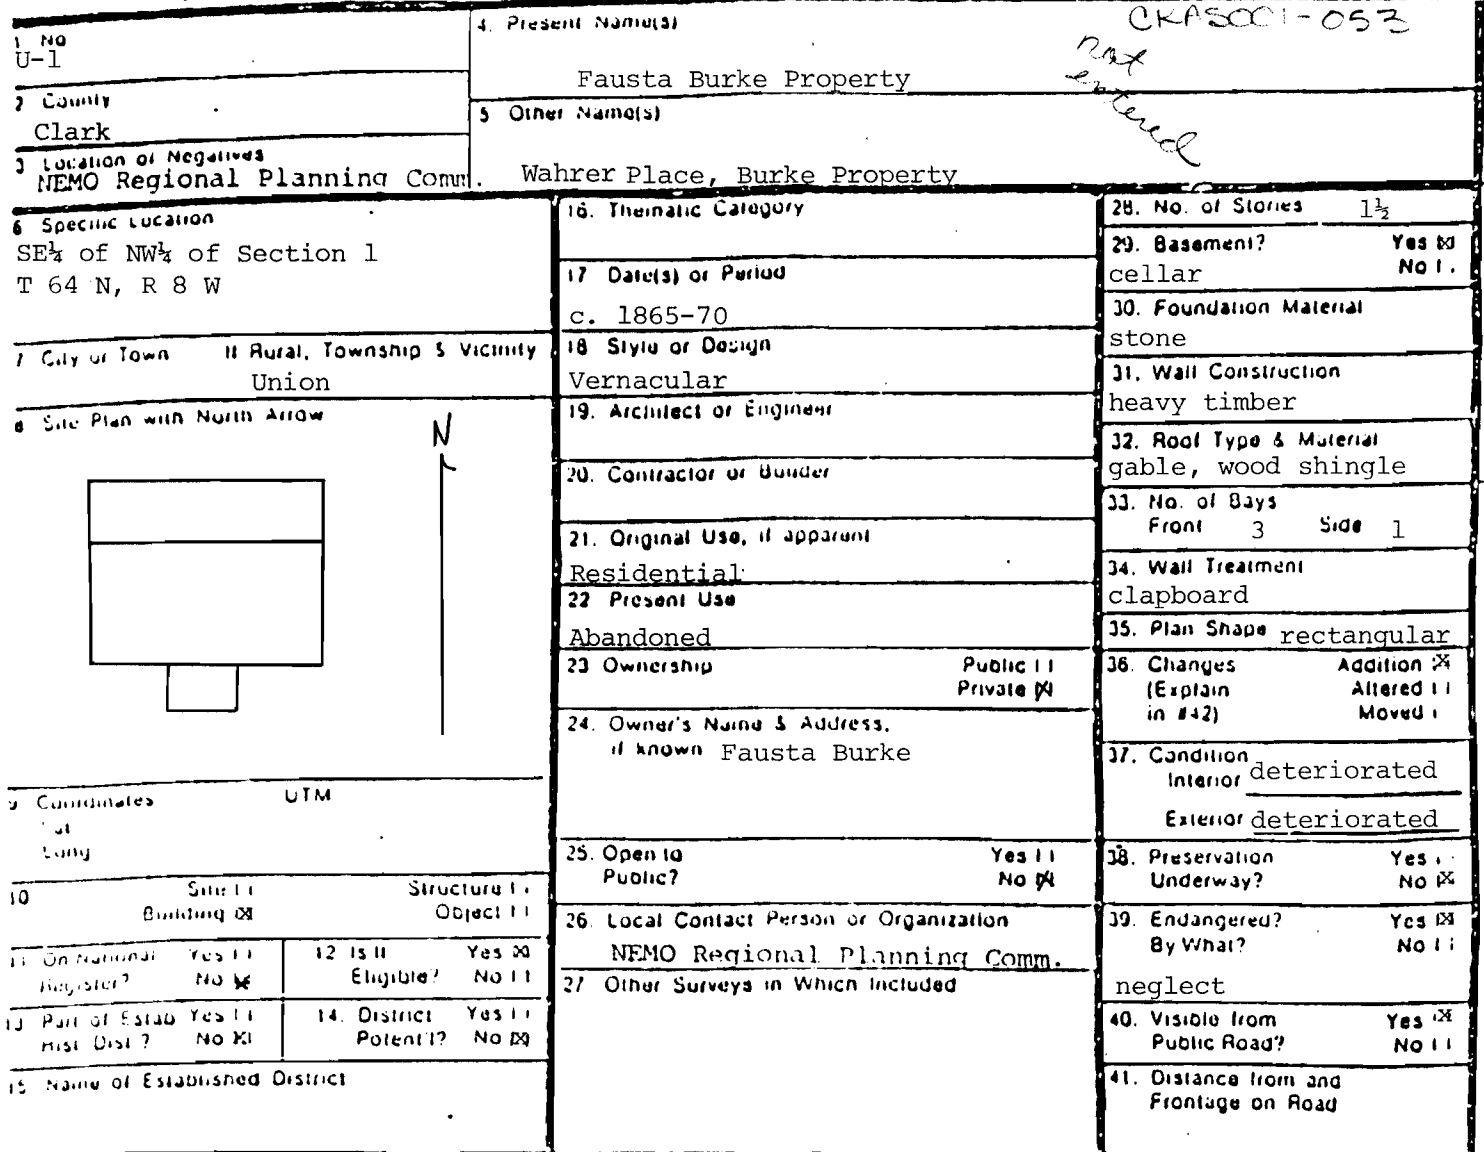 CKAS001-053
not
entered
1 No
U-1
2 County
Clark
3 Location of Negatives
NEMO Regional Planning Comm.
4. Present Name(s)
Fausta Burke Property
5 Other Name(s)
Wahrer Place, Burke Property
6 Specific Location
SE¼ of NW¼ of Section 1
T 64 N, R 8 W
7 City or Town If Rural, Township & Vicinity
Union
8 Site Plan with North Arrow
N
9 Coordinates UTM
Lat
Long
10 Site Structure
Building ☒ Object
11 On National Yes
Register? No ☒
12 Is It Yes ☒
Eligible? No
13 Part of Estab Yes
Hist Dist? No ☒
14. District Yes
Potent'l? No ☒
15 Name of Established District
16. Thematic Category
17 Date(s) or Period
c. 1865-70
18 Style or Design
Vernacular
19. Architect or Engineer
20. Contractor or Builder
21. Original Use, if apparent
Residential
22 Present Use
Abandoned
23 Ownership Public
Private ☒
24. Owner's Name & Address,
if known Fausta Burke
25. Open to Yes
Public? No ☒
26. Local Contact Person or Organization
NEMO Regional Planning Comm.
27 Other Surveys in Which Included
28. No. of Stories 1½
29. Basement? Yes ☒
cellar No
30. Foundation Material
stone
31. Wall Construction
heavy timber
32. Roof Type & Material
gable, wood shingle
33. No. of Bays
Front 3 Side 1
34. Wall Treatment
clapboard
35. Plan Shape rectangular
36. Changes Addition ☒
(Explain Altered
in #42) Moved
37. Condition
Interior deteriorated
Exterior deteriorated
38. Preservation Yes
Underway? No ☒
39. Endangered? Yes ☒
By What? No
neglect
40. Visible from Yes ☒
Public Road? No
41. Distance from and
Frontage on Road